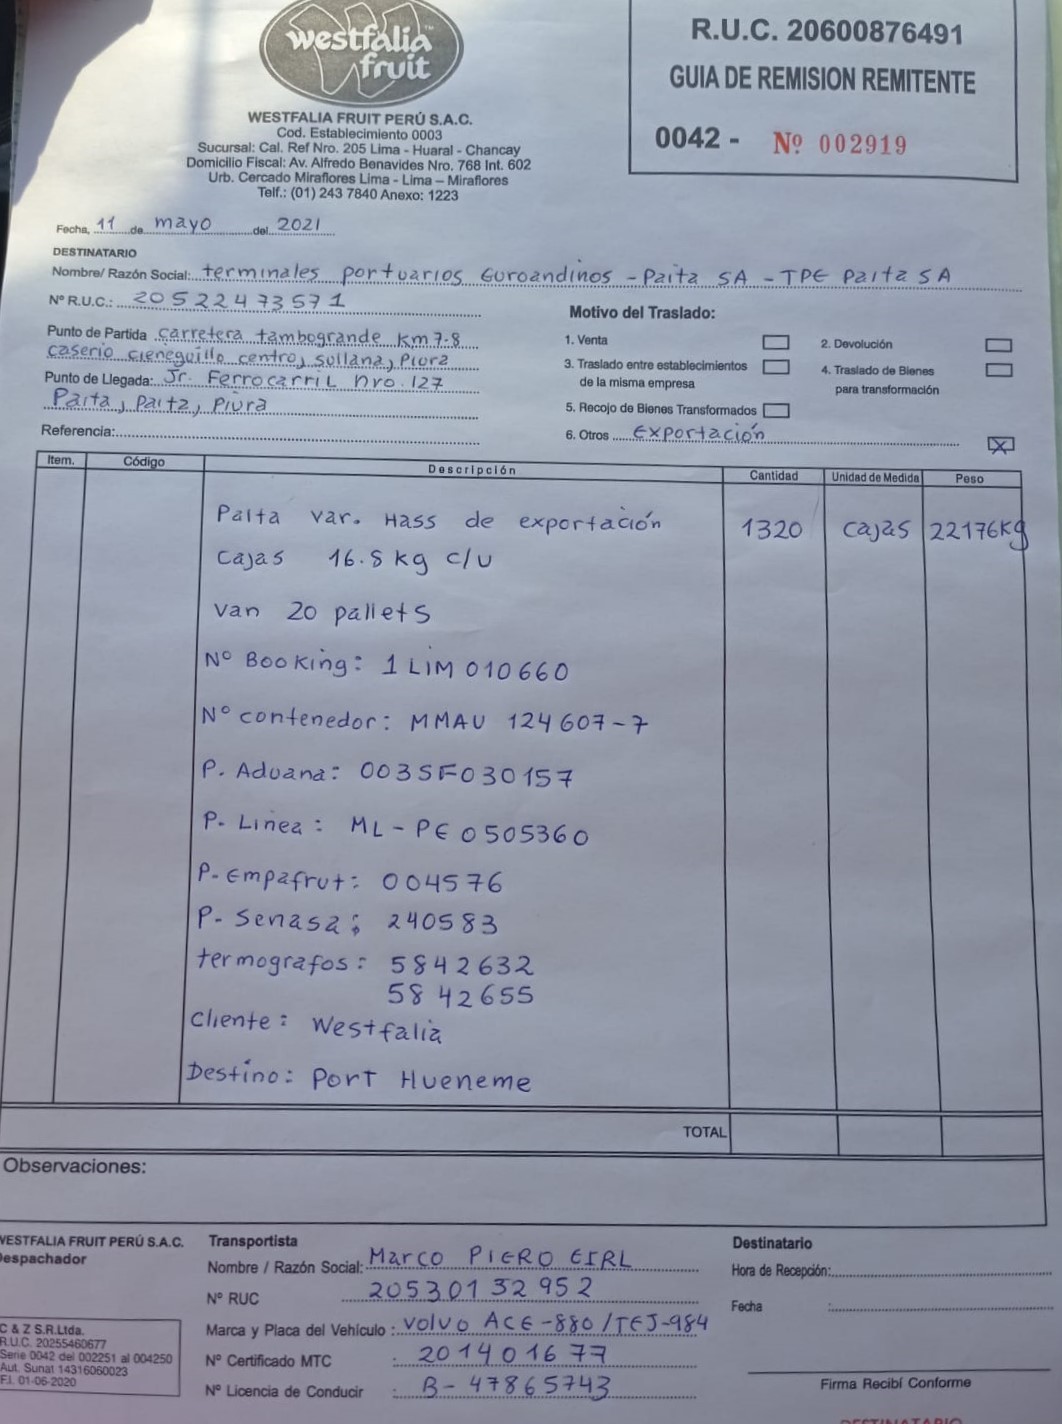 westfalia
fruit
WESTFALIA FRUIT PERÚ S.A.C.
Cod. Establecimiento 0003
Sucursal: Cal. Ref Nro. 205 Lima - Huaral - Chancay
Domicilio Fiscal: Av. Alfredo Benavides Nro. 768 Int. 602
Urb. Cercado Miraflores Lima - Lima – Miraflores
Telf.: (01) 243 7840 Anexo: 1223
R.U.C. 20600876491
GUIA DE REMISION REMITENTE
0042 - Nº 002919
Fecha, 11 de mayo del 2021
DESTINATARIO
Nombre/ Razón Social: terminales portuarios Euroandinos - Paita SA - TPE Paita SA
Nº R.U.C.: 20522473571
Punto de Partida carretera tambogrande Km 7-8
caserio cieneguillo centro, sullana, Piura
Punto de Llegada: Jr. Ferrocarril nro. 127
Paita, Paita, Piura
Referencia:
Motivo del Traslado:
1. Venta
2. Devolución
3. Traslado entre establecimientos
de la misma empresa
4. Traslado de Bienes
para transformación
5. Recojo de Bienes Transformados
6. Otros Exportación X
Item. Código Descripción Cantidad Unidad de Medida Peso
Palta var. Hass de exportación 1320 cajas 22176Kg
Cajas 16.8 kg c/u
Van 20 pallets
Nº Booking: 1LIM010660
Nº contenedor: MMAU 124607-7
P. Aduana: 003SF030157
P- Linea: ML-PE0505360
P- Empafrut: 004576
P- Senasa: 240583
termografos: 5842632
5842655
Cliente: Westfalia
Destino: Port Hueneme
TOTAL
Observaciones:
WESTFALIA FRUIT PERÚ S.A.C.
Despachador
Transportista
Nombre / Razón Social: Marco PIERO EIRL
Nº RUC 20530132952
Marca y Placa del Vehículo: Volvo ACE-880/TEJ-984
Nº Certificado MTC : 201401677
Nº Licencia de Conducir : B-47865743
Destinatario
Hora de Recepción:
Fecha :
Firma Recibí Conforme
C & Z S.R.Ltda.
R.U.C. 20255460677
Serie 0042 del 002251 al 004250
Aut. Sunat 14316060023
F.I. 01-06-2020
DESTINATARIO